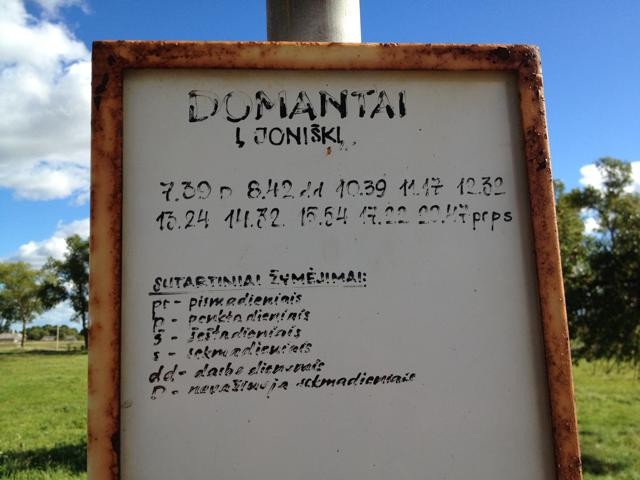 DOMANTAI
Į JONIŠKĮ
7.39 D 8.42 dd 10.39 11.17 12.32
13.24 14.32 15.54 17.22 20.47 prps
SUTARTINIAI ŽYMĖJIMAI:
pr - pirmadieniais
p - penktadieniais
š - šeštadieniais
s - sekmadieniais
dd - darbo dienomis
D - nevažiuoja sekmadieniais